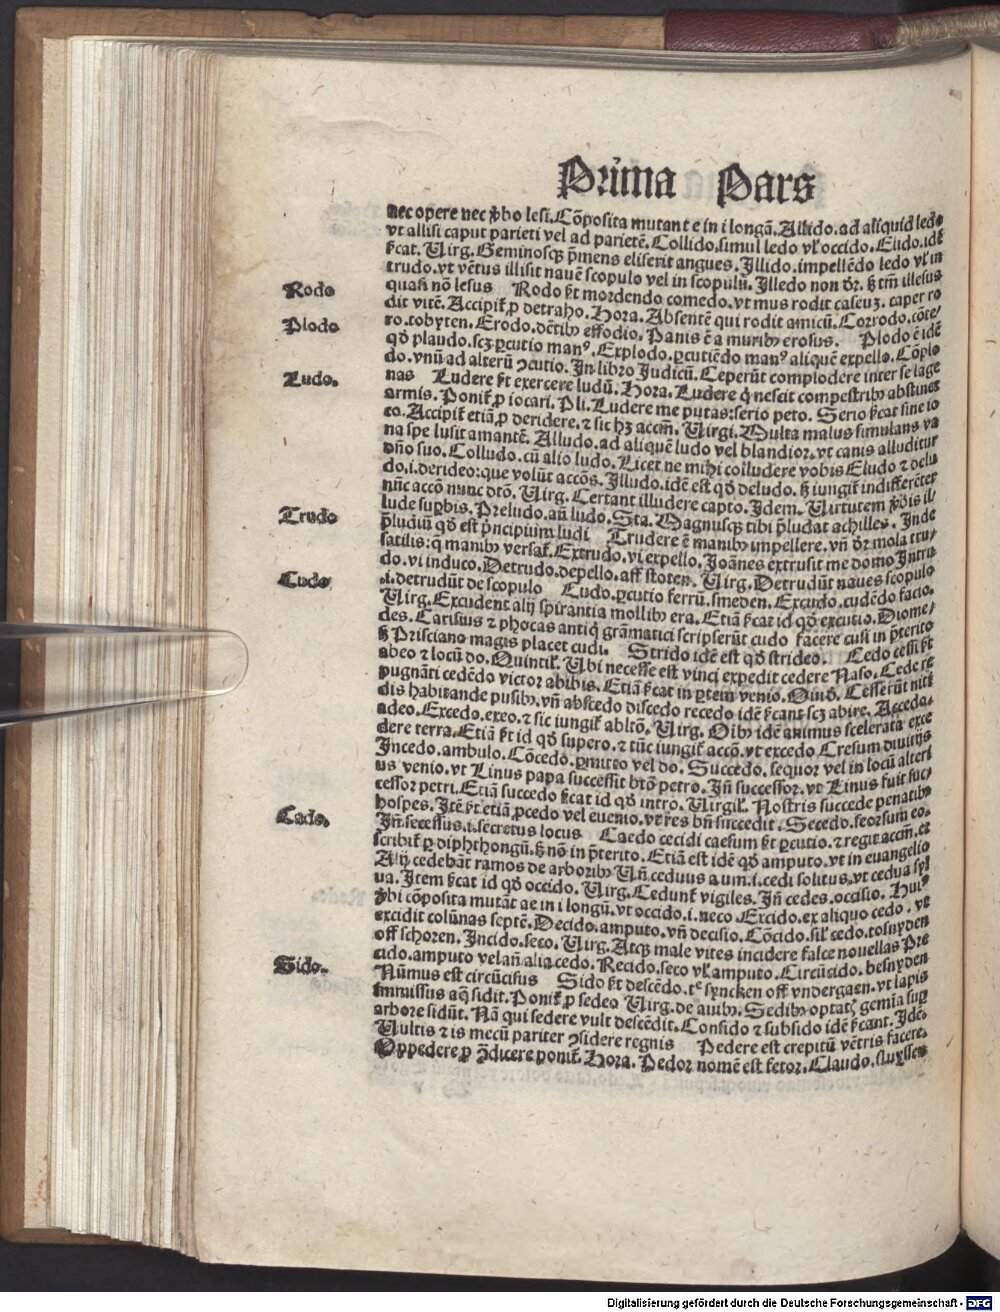 Prima Pars
nec opere nec ꝟbo lesi. Cōposita mutant e in i longā. Allido. ad aliquid ledo
vt allisi caput parieti vel ad parietē. Collido. simul ledo vl' occido. Elido. idē
ſcat. Virg. Geminosqꝫ p̄mens eliserit angues. Illido. impellēdo ledo vl' in
trudo. vt vētus illisit nauē scopulo vel in scopulū. Illedo non dr̄. ſꝫ tm̄ illesus
quasi nō lesus Rodo ſt mordendo comedo. vt mus rodit caseuꝫ. caper ro
Rodo
dit vitē. Accipit̄ ꝓ detraho. Hora. Absentē qui rodit amicū. Corrodo. cōte/
ro. tobyten. Erodo. dētibꝰ effodio. Panis ē a muribꝰ erosus. Plodo ē idē
Plodo
qd̄ plaudo. scꝫ ꝑcutio manꝰ. Explodo. ꝑcutiēdo manꝰ aliquē expello. Cōplo
do. vnū ad alterū ꝯcutio. In libro Judicū. Ceperūt complodere inter se lage
nas Ludere ſt exercere ludū. Hora. Ludere q̇ nescit compestribꝰ abstinet
Ludo.
armis. Ponit̄ ꝓ iocari. Pli. Ludere me putas: serio peto. Serio ſcat sine io
co. Accipit̄ etiā ꝓ deridere. ⁊ sic hꝫ accm̄. Virgi. Multa malus simulans va
na spe lusit amantē. Alludo. ad aliquē ludo vel blandior. vt canis alluditur
dn̄o suo. Colludo. cū alio ludo. Licet ne mihi colludere vobis Eludo ⁊ delu
do. i. derideo: que volūt accōs. Illudo. idē est qd̄ deludo. ſꝫ iungit̄ indifferēter
nūc accō nunc dtō. Virg. Certant illudere capto. Idem. Virtutem ꝟbis il/
lude suꝑbis. Preludo. an̄ ludo. Sta. Magnusqꝫ tibi p̄ludat achilles. Inde
p̄ludiū qd̄ est p̄ncipium ludi Trudere ē manibꝰ impellere. vn̄ dr̄ mola tru/
Trudo
satilis: q̄ manibꝰ versat̄. Extrudo. vi expello. Joānes extrusit me domo Intru
do. vi induco. Detrudo. depello. aff stoten. Virg. Detrudūt naues scopulo
.i. detrudūt de scopulo Cudo. ꝑcutio ferrū. smeden. Excudo. cudēdo facio.
Cudo
Virg. Excudent alij spirantia mollibꝰ era. Etiā ſcat id qd̄ excutio. Diome/
des. Carisius ⁊ phocas antiq̇ grāmatici scripserūt cudo facere cusi in p̄terito
ſꝫ Prisciano magis placet cudi. Strido idē est qd̄ strideo. Cedo cessi ſt
abeo ⁊ locū do. Quintil'. Ubi necesse est vinci expedit cedere Naso. Cede re
pugnāti cedēdo victor abibis. Etiā ſcat in ꝑtem venio. Ouid. Cesserūt niti
dis habitande pusibꝰ. vn̄ abscedo discedo recedo idē ſcant scꝫ abire. Acceda.
adeo. Excedo. exeo. ⁊ sic iungit̄ abltō. Virg. Oibꝰ idē animus scelerata exce
dere terra. Etiā ſt id qd̄ supero. ⁊ tūc iungit̄ accō. vt excedo Cresum diuitijs
Incedo. ambulo. Cōcedo. ꝑmitto vel do. Succedo. sequor vel in locū alteri
us venio. vt Linus papa successit btō petro. Jn̄ successor. vt Linus fuit suc/
cessor petri. Etiā succedo ſcat id qd̄ intro. Virgil'. Nostris succede penatibꝰ
hospes. Itē ſt etiā ꝓcedo vel euenio. vt res bn̄ succedit. Secedo. seorsum eo.
Jn̄ secessus. i. secretus locus Caedo cecidi caesum ſt ꝑcutio. ⁊ regit accm̄. et
Cado.
scribit̄ ꝑ diphthongū. ſꝫ nō in p̄terito. Etiā est idē qd̄ amputo. vt in euangelio
Alij cedebāt ramos de arboribꝰ Vn̄ ceduus a um. i. cedi solitus. vt cedua syl
ua. Item ſcat id qd̄ occido. Virg. Cedunt̄ vigiles. Jn̄ cedes. ocasio. Huiꝰ
ꝟbi cōposita mutāt ae in i longū. vt occido. i. neco. Excido. ex aliquo cedo. vt
excidit colūnas septē. Decido. amputo. vn̄ decisio. Cōcido. sil' cedo. to snyden
off schoren. Incido. seco. Virg. Atqꝫ male vites incidere falce nouellas Pre
cido. amputo vel an̄ alia cedo. Recido. seco vl' amputo. Circūcido. besnyden
Nūmus est circūcisus Sido ſt descēdo. tᵉ syncken off vndergaen. vt lapis
Sido.
immissus aq̄ sidit. Ponit̄ ꝓ sedeo Virg. de auibꝰ. Sedibꝰ optatꝭ gemīa suꝑ
arbore sidūt. Nā qui sedere vult descēdit. Consido ⁊ subsido idē ſcant. Idē.
Vultis ⁊ is mecū pariter ꝯsidere regnis Pedere est crepitū vētris facere.
Oppedere ꝓ ꝯ̄dicere ponit̄. Hora. Pedor nomē est fetor. Claudo. sluyssen
Digitalisierung gefördert durch die Deutsche Forschungsgemeinschaft - DFG